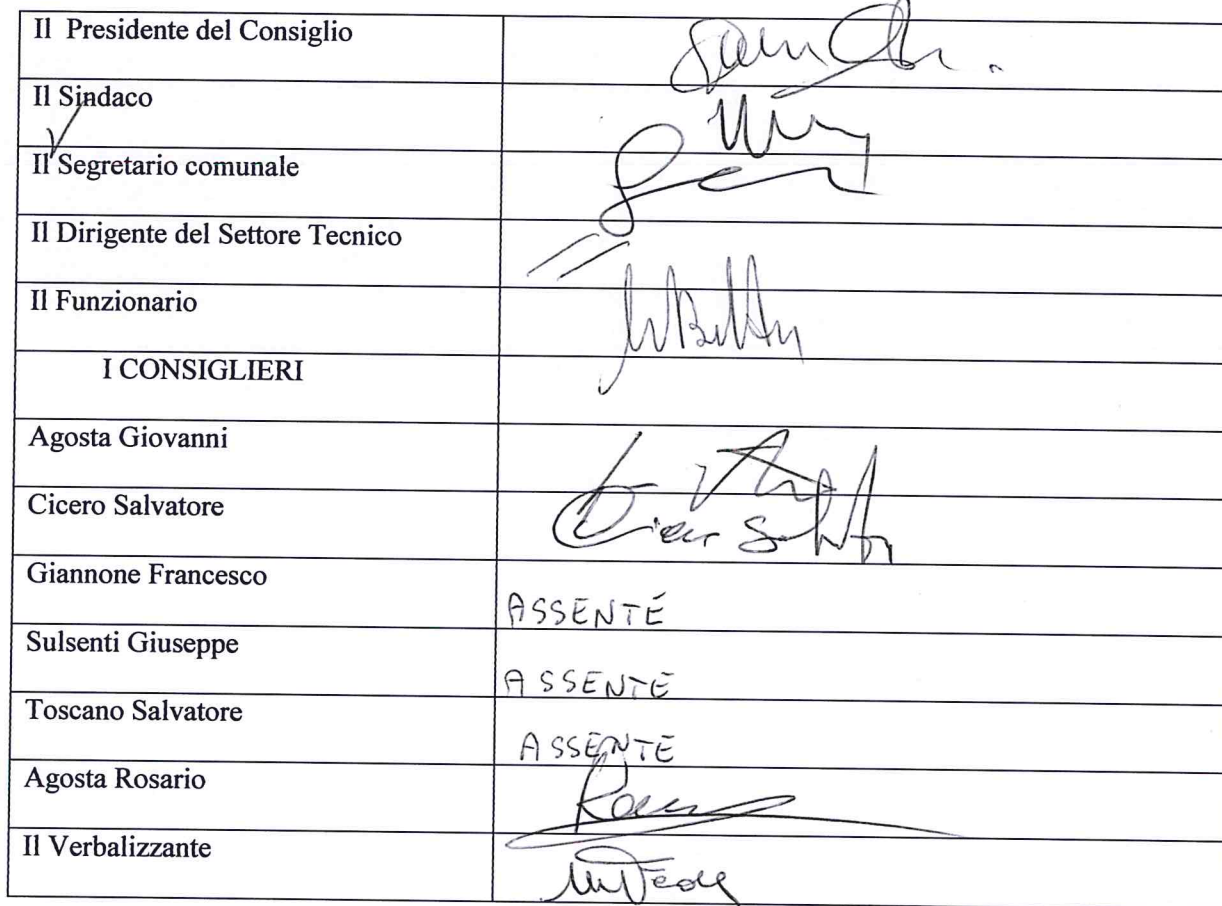 Il Presidente del Consiglio
Il Sindaco
Il Segretario comunale
Il Dirigente del Settore Tecnico
Il Funzionario
I CONSIGLIERI
Agosta Giovanni
Cicero Salvatore
Giannone Francesco
ASSENTE
Sulsenti Giuseppe
ASSENTE
Toscano Salvatore
ASSENTE
Agosta Rosario
Il Verbalizzante